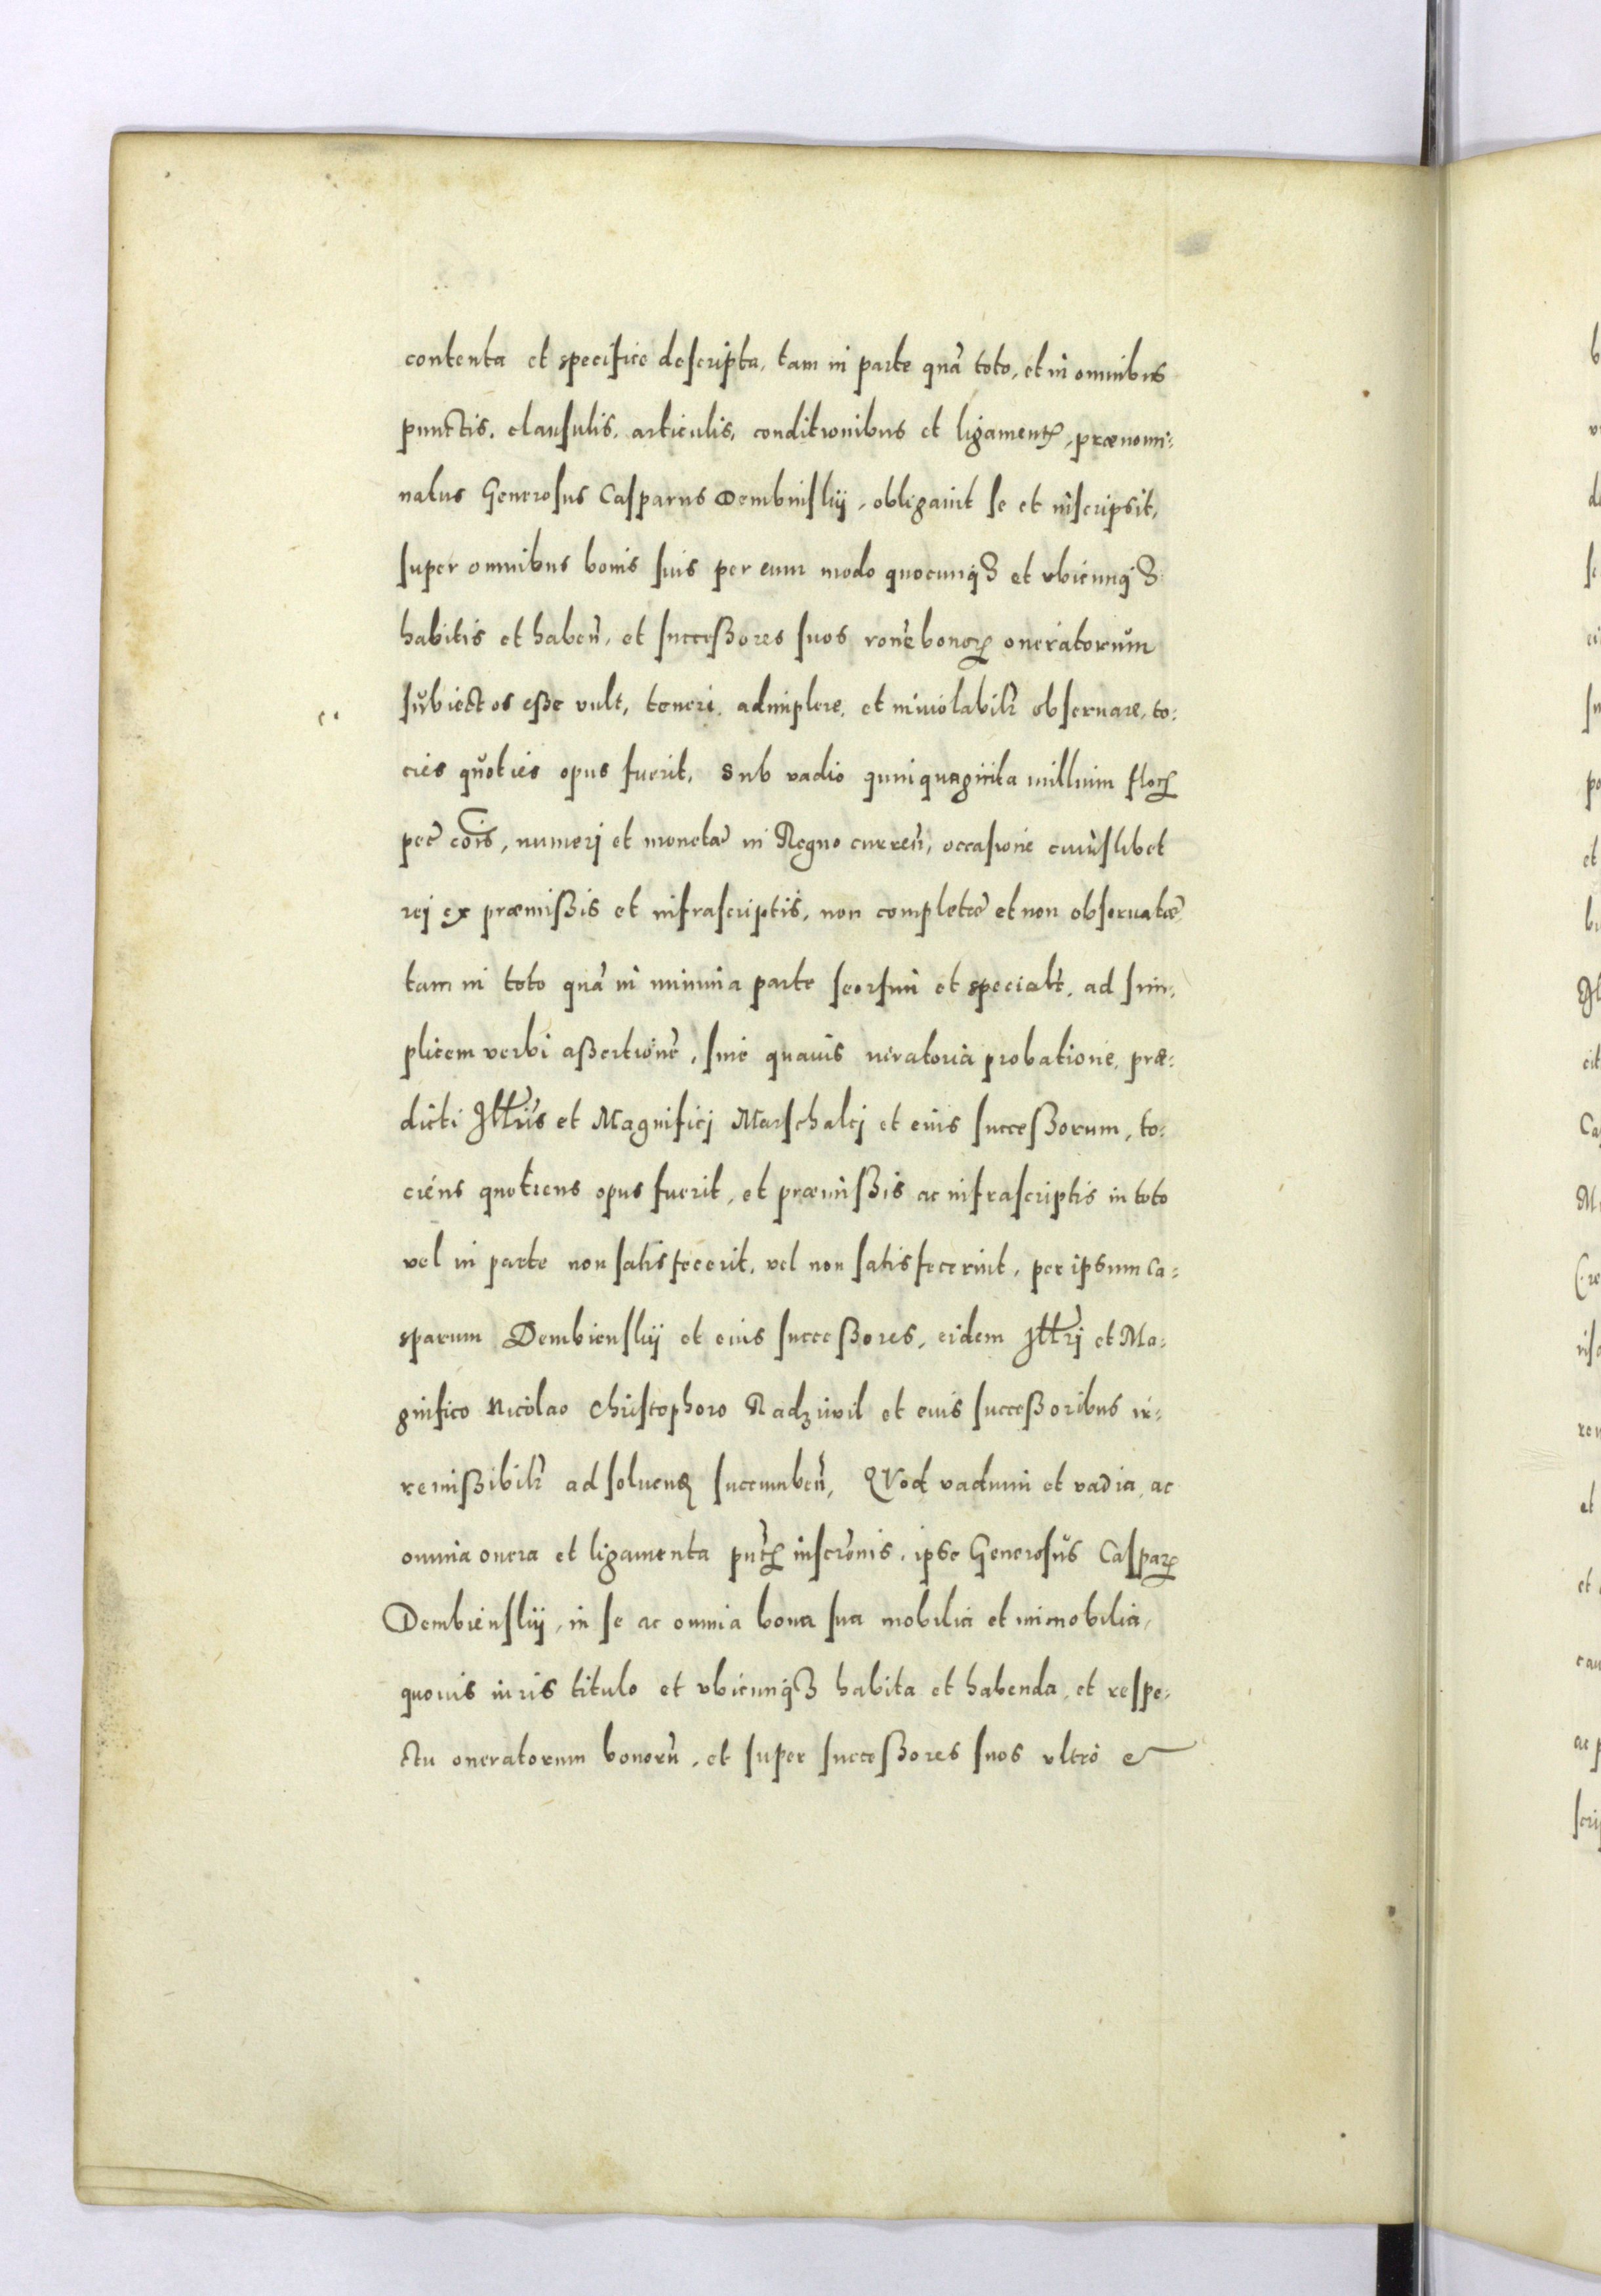 contenta et specifice descripta, tam in parte quã toto, et in omnibus
punctis, clausulis, articulis, conditionibus et ligamentꝝ, prænomi:
natus Generosus Casparus Dembinskij, obligauit se et inscripsit,
super omnibus bonis suis per eum modo quocunqꝫ et vbicunqꝫ
habitis et habeñ, et successores suos roñe bonoꝝ oneratorum
subiectos esse vult, teneri, adimplere, et inuiolabilr obseruare, to:
cies quoties opus fuerit, Sub vadio quinquaginta millium floꝝ
pec͂ cõis, numerj et monetæ in Regno curreñ, occasione cuiuslibet
rej ex præmissis et infrascriptis, non completæ et non obseruatæ,
tam in toto quã in minima parte seorsim et specialr̃, ad sim:
plicem verbi assertionẽ, sine quauis iuratoria probatione, præ:
dicti Illris et Magnificj Marschalcj et eius successorum, to:
ciens quotiens opus fuerit, et præmissis ac infrascriptis in toto
vel in parte non satisfecerit, vel non satisfecerint, per ipsum Ca:
sparum Dembienskij et eius successores, eidem Illrj et Ma:
gnifico Nicolao Christophoro Radziwil et eius successoribus ir:
remissibilr ad soluenꝝ succumbeñ, QVod vadium et vadia, ac
omnia onera et ligamenta pñtꝝ inscrõnis, ipse Generosus Casparꝝ
Dembienskij, in se ac omnia bona sua mobilia et immobilia,
quouis iuris titulo et vbicunqꝫ habita et habenda, et respe:
ctu oneratorum bonorũ, et super successores suos vltrò e